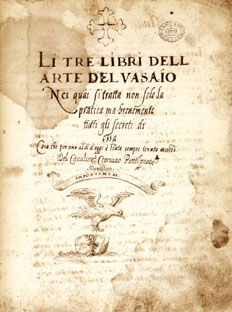 LI TRE LIBRI DELL
ARTE DEL VASAIO
Nei quai si tratta non solo la
pratica ma brevemente
tutti gli secreti di
essa
Cosa che per uno al dì d'oggi è stata sempre tenuta ascosta
Del Cavalier Cipriano Piccolpasso
Durantino